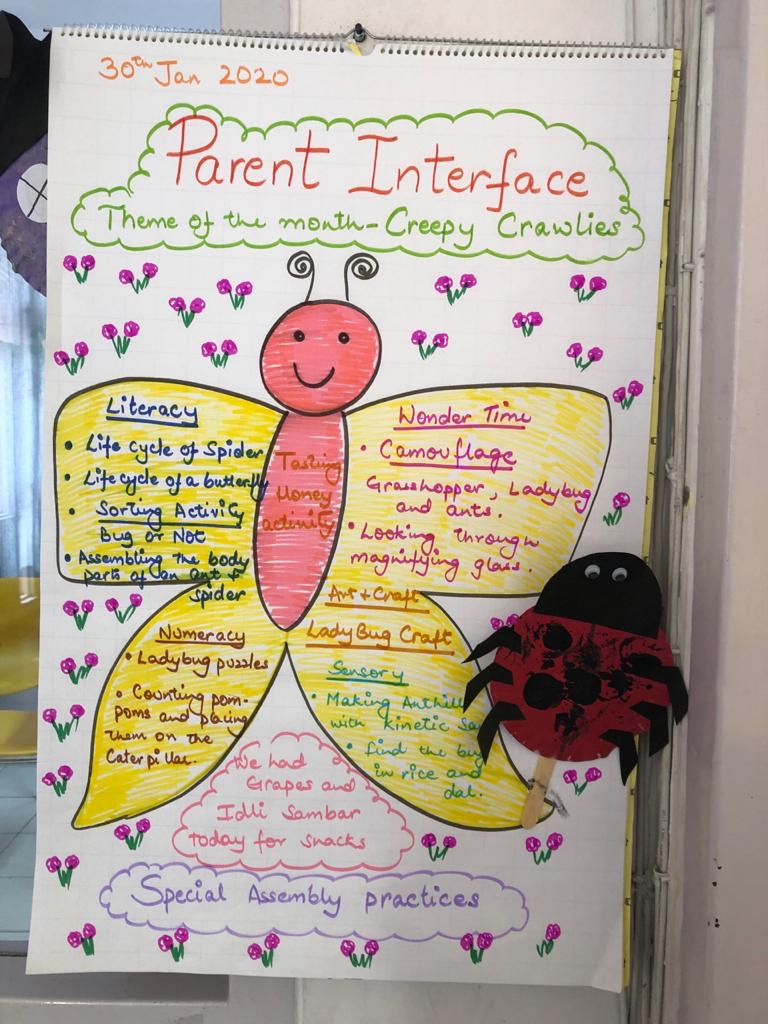 30th Jan 2020
Parent Interface
Theme of the month - Creepy Crawlies
Literacy
• Life cycle of Spider
• Life cycle of a butterfly
• Sorting Activity
Bug or Not
• Assembling the body
parts of an ant +
spider
Tasting
Honey
activity
Wonder Time
• Camouflage
Grasshopper, Ladybug
and ants.
• Looking through
magnifying glass.
Numeracy
• Ladybug puzzles
• Counting pom-
poms and placing
them on the
Caterpillar.
Art + Craft
LadyBug Craft
Sensory
• Making Anthill
with kinetic
• find the bug
in rice and
dal.
We had
Grapes and
Idli Sambar
today for snacks
Special Assembly practices